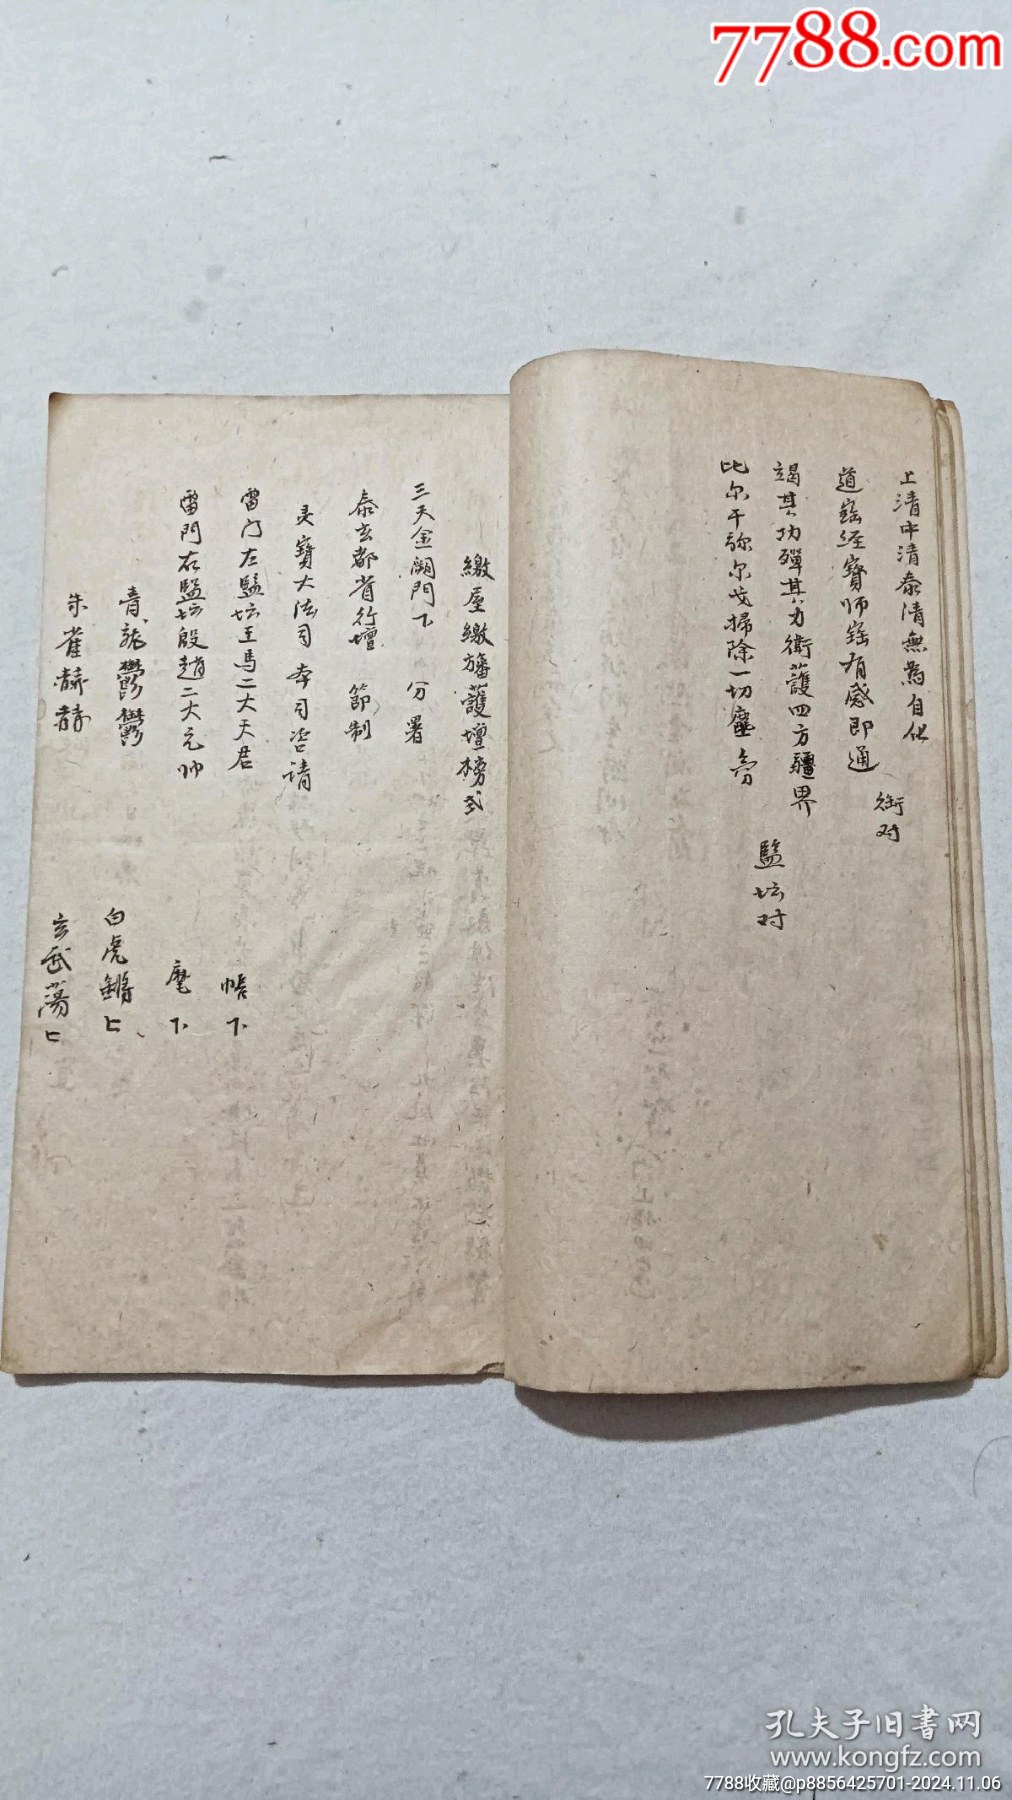 7788.com
上清中清泰清無為自化
道寳經寳師寳有感即通
衔对
竭其功殫其力衛護四方疆界
比尔干弥尔戈掃除一切塵氛
監坛对
繳壓繳旛護壇榜式
三天金闕門下 分署
泰玄都省行壇 節制
灵寶大法司本司咨请
雷门左監坛王馬二大天君 帳下
雷門右監坛殷趙二大元帅 麾下
青龍鬱鬱 白虎鏘匕
朱雀赫赫 玄武蕩匕
孔夫子旧書网
www.kongfz.com
7788收藏@p8856425701-2024.11.06